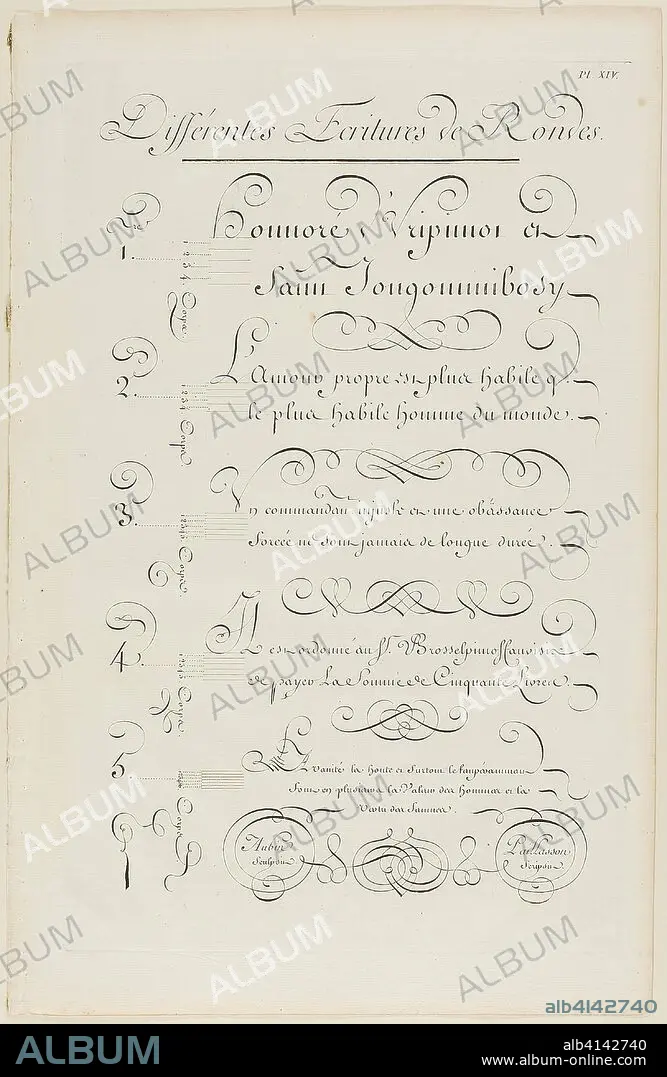 Pl. XIV.
Différentes Ecritures de Rondes.
1.
1 2 3 4 Corps
Honnoré
2.
1 2 3 4 Corps
L'Amour propre est plus habile q.
le plus habile homme du monde.
3.
Corps
Un commandant injuste et une obëissance
forcée ne sont jamais de longue durée.
4.
Corps
Il est ordonné au Sr.
de payer La Somme de Cinquante Livres.
5.
Corps
vanité la honte et surtout le tempérament
font en plusieurs la Valeur des hommes et la
Vertu des femmes.
Aubin
Sculpsit
Paillasson
Scripsit
ALBUM
alb4142740
ALBUM
alb4142740
www.album-online.com